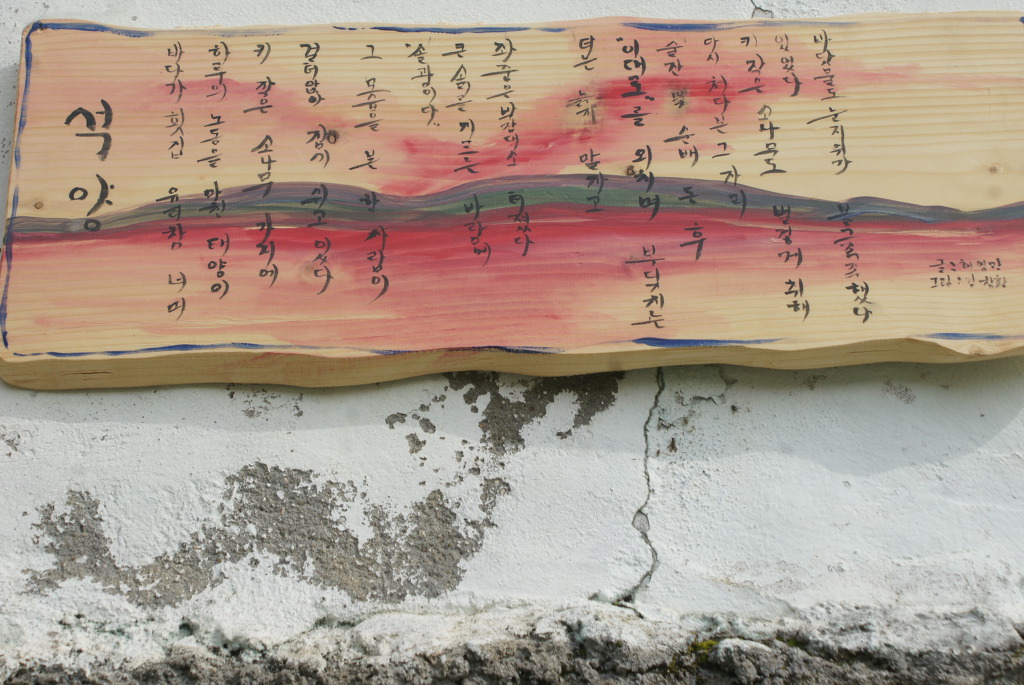 석양
바다가 횟집 유리창 너머
하루의 노동을 마친 태양이
키 작은 소나무 가지에
걸터앉아 잠시 쉬고 있었다
그 모습을 본 한 사람이
"솔광이다."
큰 지르는 바람에
좌중은 박장대소 터졌다
더는 늙지 말자고
"이대로"를 외치며 부딪치는
술잔 몇 순배 돈 후
다시 쳐다본 그 자리
키 작은 소나무도 벌겋게 취해
있었다
바닷물도 눈자위가 볼그족족했다
글:허형만